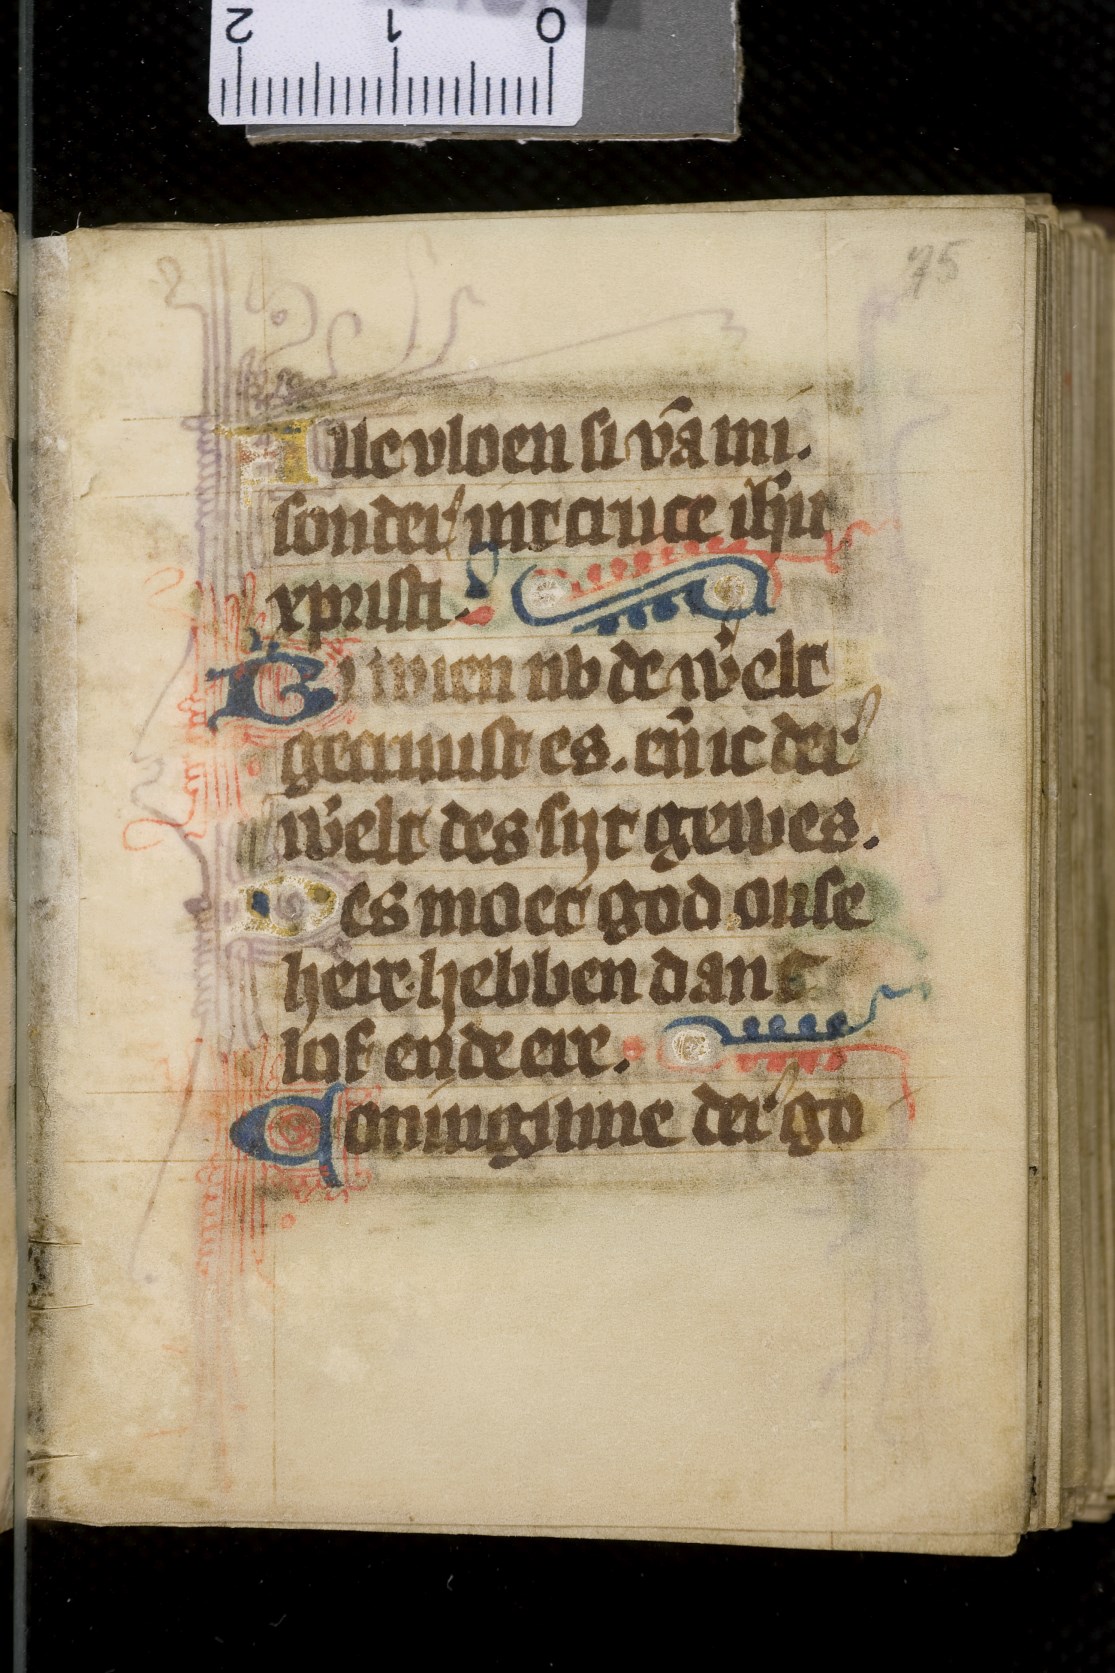 75
Alle vloen si vā mi.
sonder int cruce ih̄u
xpristi.
Bi wien nv de w̄elt
gecruust es. eñ ic der
w̄elt des sijt gewes.
Des moet god onse
heire hebben danc
lof ende eere.
Coninginne der go